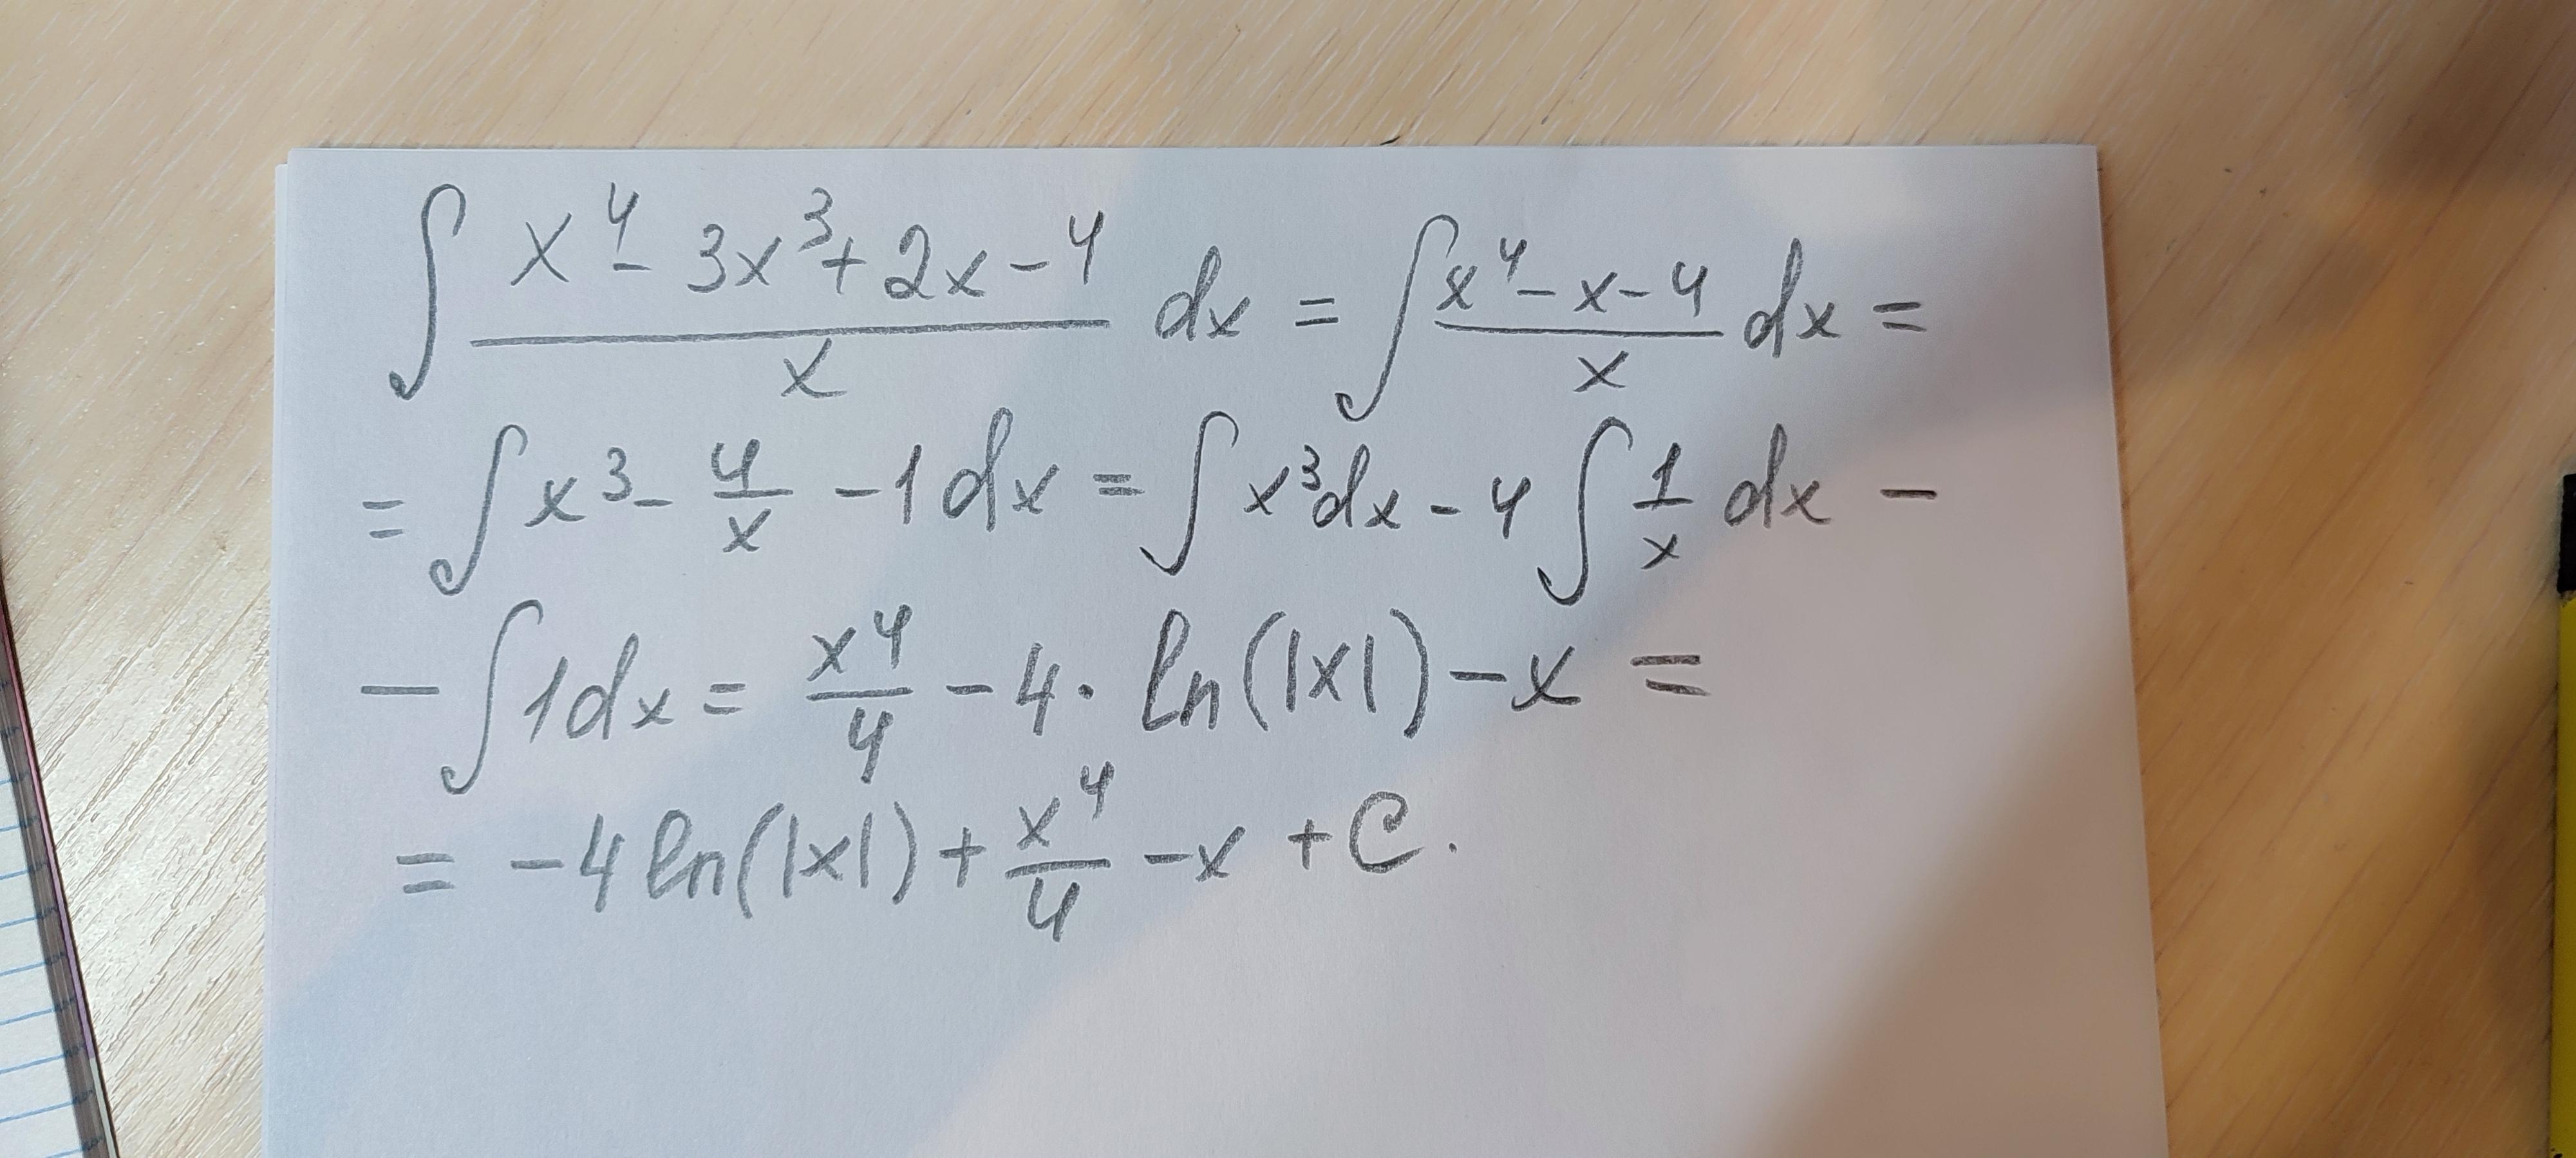 ∫ (x⁴ - 3x³ + 2x - 4)/x dx = ∫ (x⁴ - x - 4)/x dx =
= ∫ x³ - 4/x - 1 dx = ∫ x³dx - 4 ∫ 1/x dx -
- ∫ 1dx = x⁴/4 - 4 · ln(|x|) - x =
= -4 ln(|x|) + x⁴/4 - x + C.